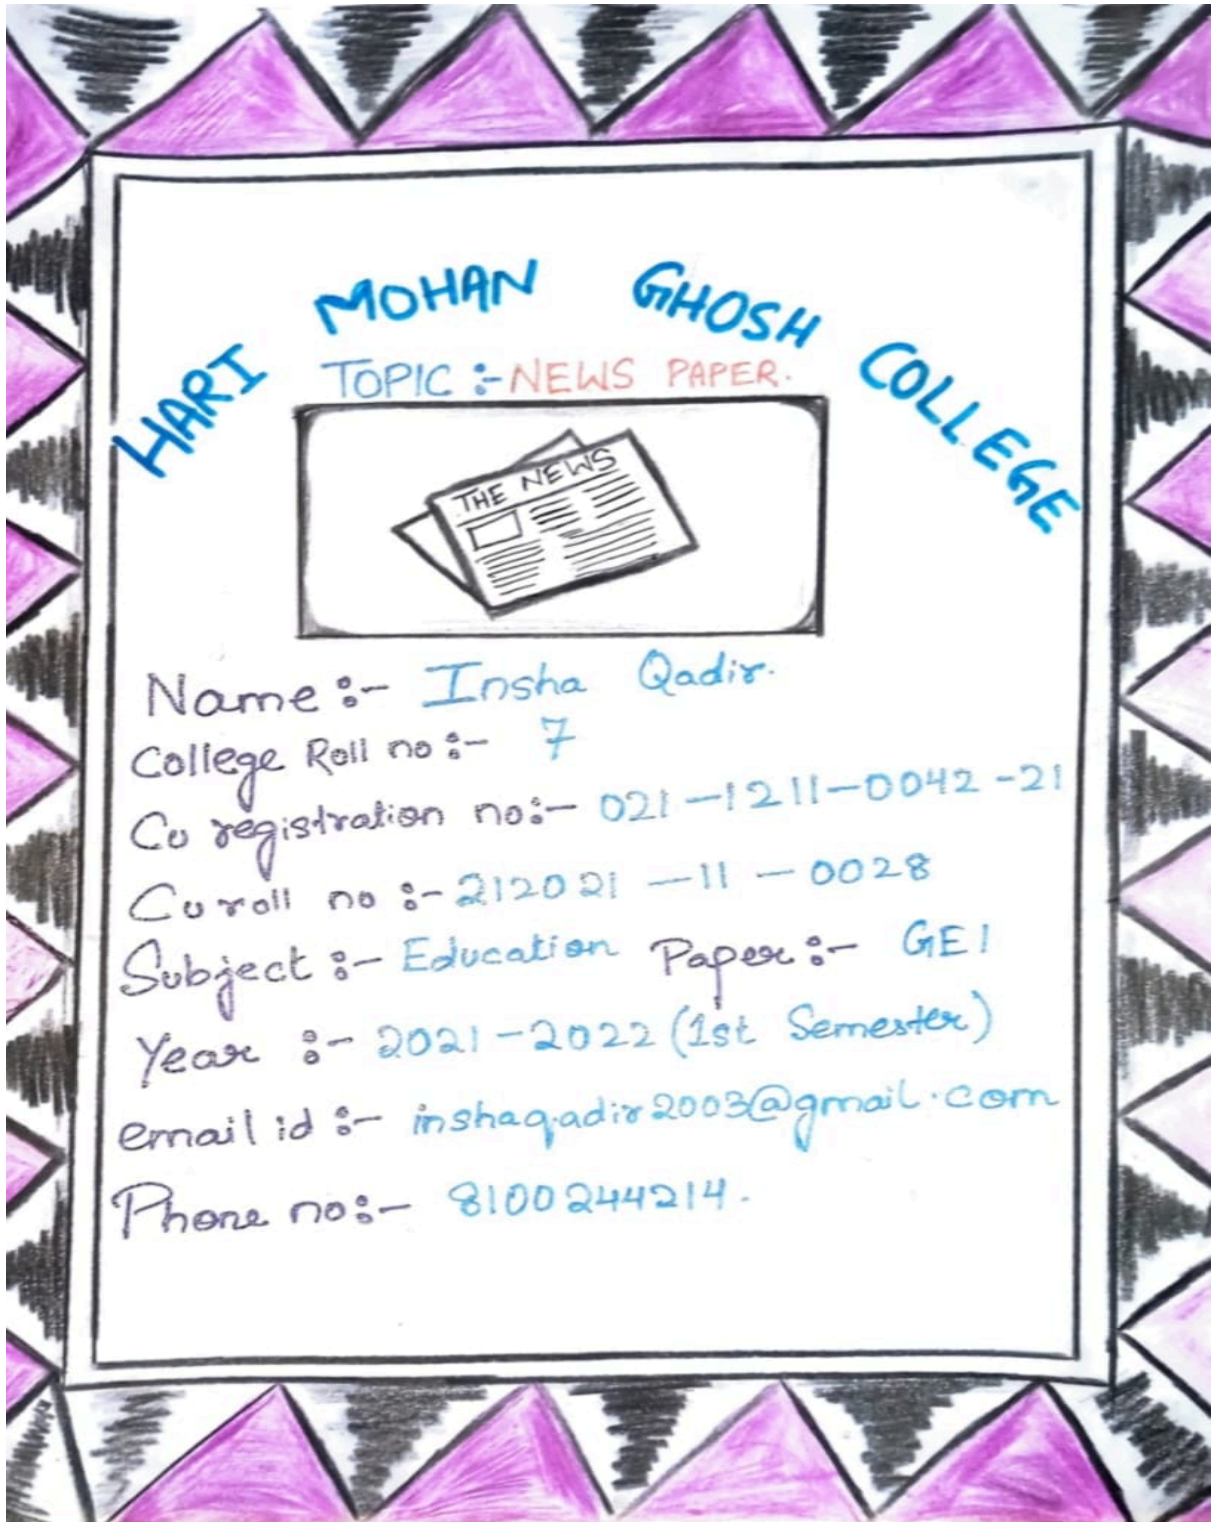 HARI MOHAN GHOSH COLLEGE
TOPIC :- NEWS PAPER.
THE NEWS
Name :- Insha Qadir.
College Roll no :- 7
Cu registration no:- 021-1211-0042-21
Cu roll no :- 212021-11-0028
Subject :- Education Paper :- GE1
Year :- 2021-2022 (1st Semester)
email id :- inshaqadir2003@gmail.com
Phone no:- 8100244214.